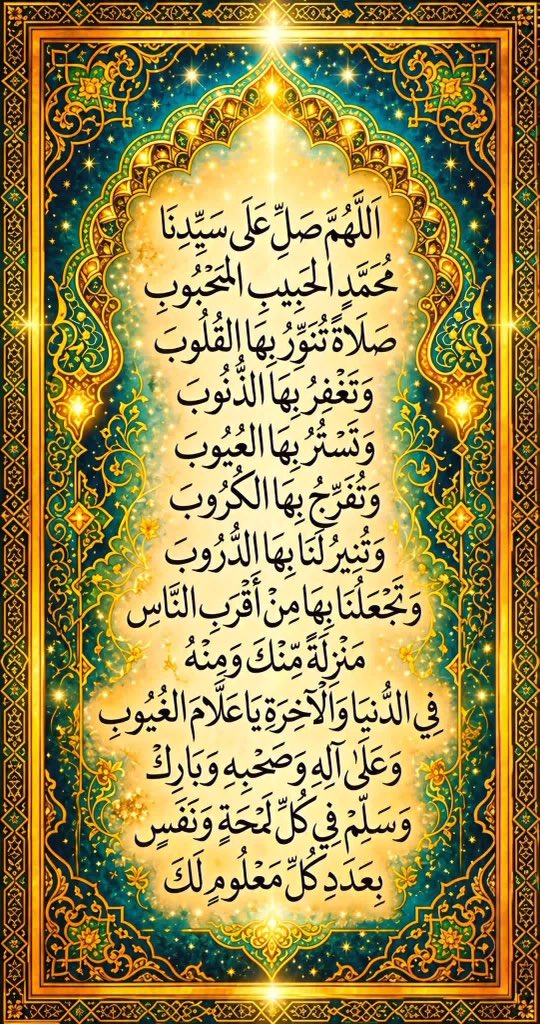 اَللَّهُمَّ صَلِّ عَلَى سَيِّدِنَا
مُحَمَّدٍ الحَبِيبِ المَحْبُوبِ
صَلَاةً تُنَوِّرُ بِهَا القُلُوبَ
وَتَغْفِرُ بِهَا الذُّنُوبَ
وَتَسْتُرُ بِهَا العُيُوبَ
وَتُفَرِّجُ بِهَا الكُرُوبَ
وَتُنِيرُ لَنَا بِهَا الدُّرُوبَ
وَتَجْعَلُنَا بِهَا مِنْ أَقْرَبِ النَّاسِ
مَنْزِلَةً مِّنْكَ وَمِنْهُ
فِي الدُّنيَا وَالْآخِرَةِ يَا عَلَّامَ الغُيُوبِ
وَعَلَىٰ آلِهِ وَصَحْبِهِ وَبَارِكْ
وَسَلِّمْ فِي كُلِّ لَمْحَةٍ وَنَفَسٍ
بِعَدَدِ كُلِّ مَعْلُومٍ لَكَ